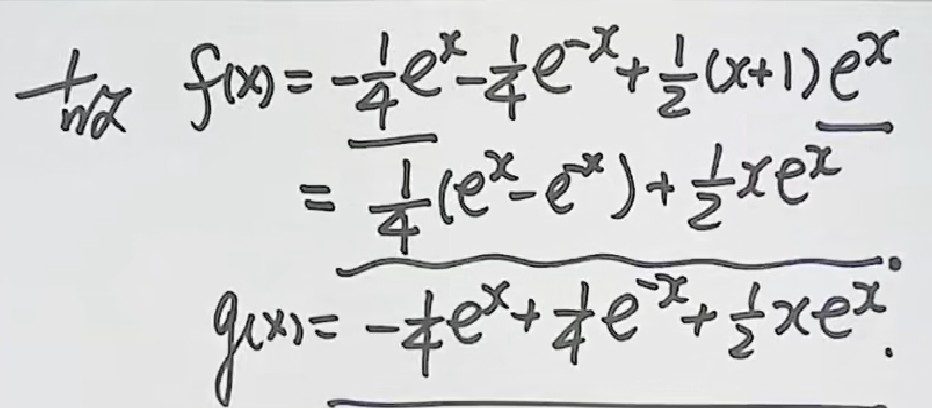 故 f(x) = -1/4 e^x - 1/4 e^{-x} + 1/2 (x+1) e^x
= 1/4 (e^x - e^{-x}) + 1/2 x e^x.
g(x) = -1/4 e^x + 1/4 e^{-x} + 1/2 x e^x.